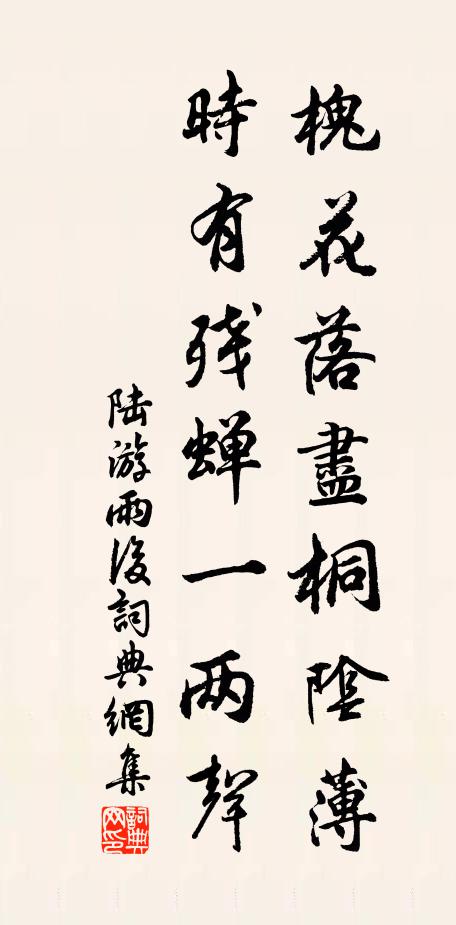 槐花落盡桐陰薄
時有残蝉一两聲
陆游雨後詞典網集
詞典网印